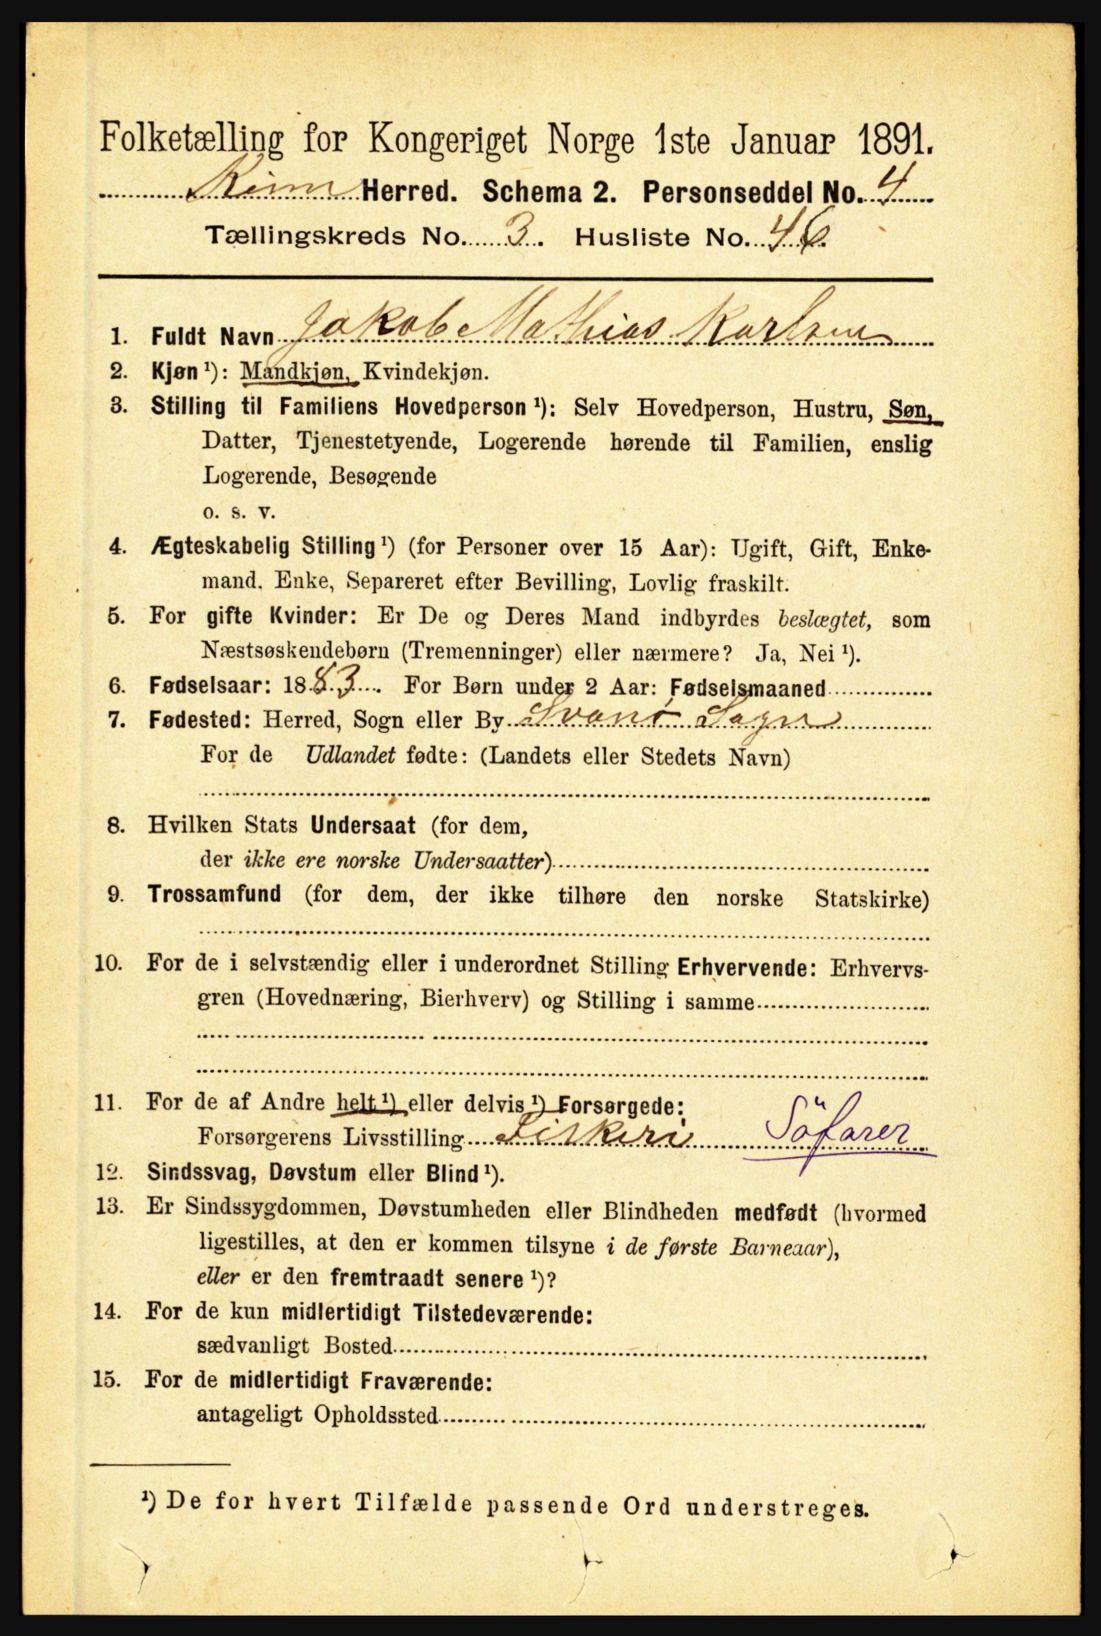 Folketælling for Kongeriget Norge 1ste Januar 1891.
Kinn Herred. Schema 2. Personseddel No. 4
Tællingskreds No. 3. Husliste No. 46.
1. Fuldt Navn Jakob Mathias Karlsen
2. Kjøn ¹): Mandkjøn, Kvindekjøn.
3. Stilling til Familiens Hovedperson ¹): Selv Hovedperson, Hustru, Søn,
Datter, Tjenestetyende, Logerende hørende til Familien, enslig
Logerende, Besøgende
o. s. v.
4. Ægteskabelig Stilling ¹) (for Personer over 15 Aar): Ugift, Gift, Enke-
mand, Enke, Separeret efter Bevilling, Lovlig fraskilt.
5. For gifte Kvinder: Er De og Deres Mand indbyrdes beslægtet, som
Næstsøskendebørn (Tremenninger) eller nærmere? Ja, Nei ¹).
6. Fødselsaar: 1883. For Børn under 2 Aar: Fødselsmaaned
7. Fødested: Herred, Sogn eller By Svanø Sogn
For de Udlandet fødte: (Landets eller Stedets Navn)
8. Hvilken Stats Undersaat (for dem,
der ikke ere norske Undersaatter)
9. Trossamfund (for dem, der ikke tilhøre den norske Statskirke)
10. For de i selvstændig eller i underordnet Stilling Erhvervende: Erhvervs-
gren (Hovednæring, Bierhverv) og Stilling i samme
11. For de af Andre helt ¹) eller delvis ¹) Forsørgede:
Forsørgerens Livsstilling Fiskeri Söfarer
12. Sindssvag, Døvstum eller Blind ¹).
13. Er Sindssygdommen, Døvstumheden eller Blindheden medfødt (hvormed
ligestilles, at den er kommen tilsyne i de første Barneaar),
eller er den fremtraadt senere ¹)?
14. For de kun midlertidigt Tilstedeværende:
sædvanligt Bosted
15. For de midlertidigt Fraværende:
antageligt Opholdssted
¹) De for hvert Tilfælde passende Ord understreges.